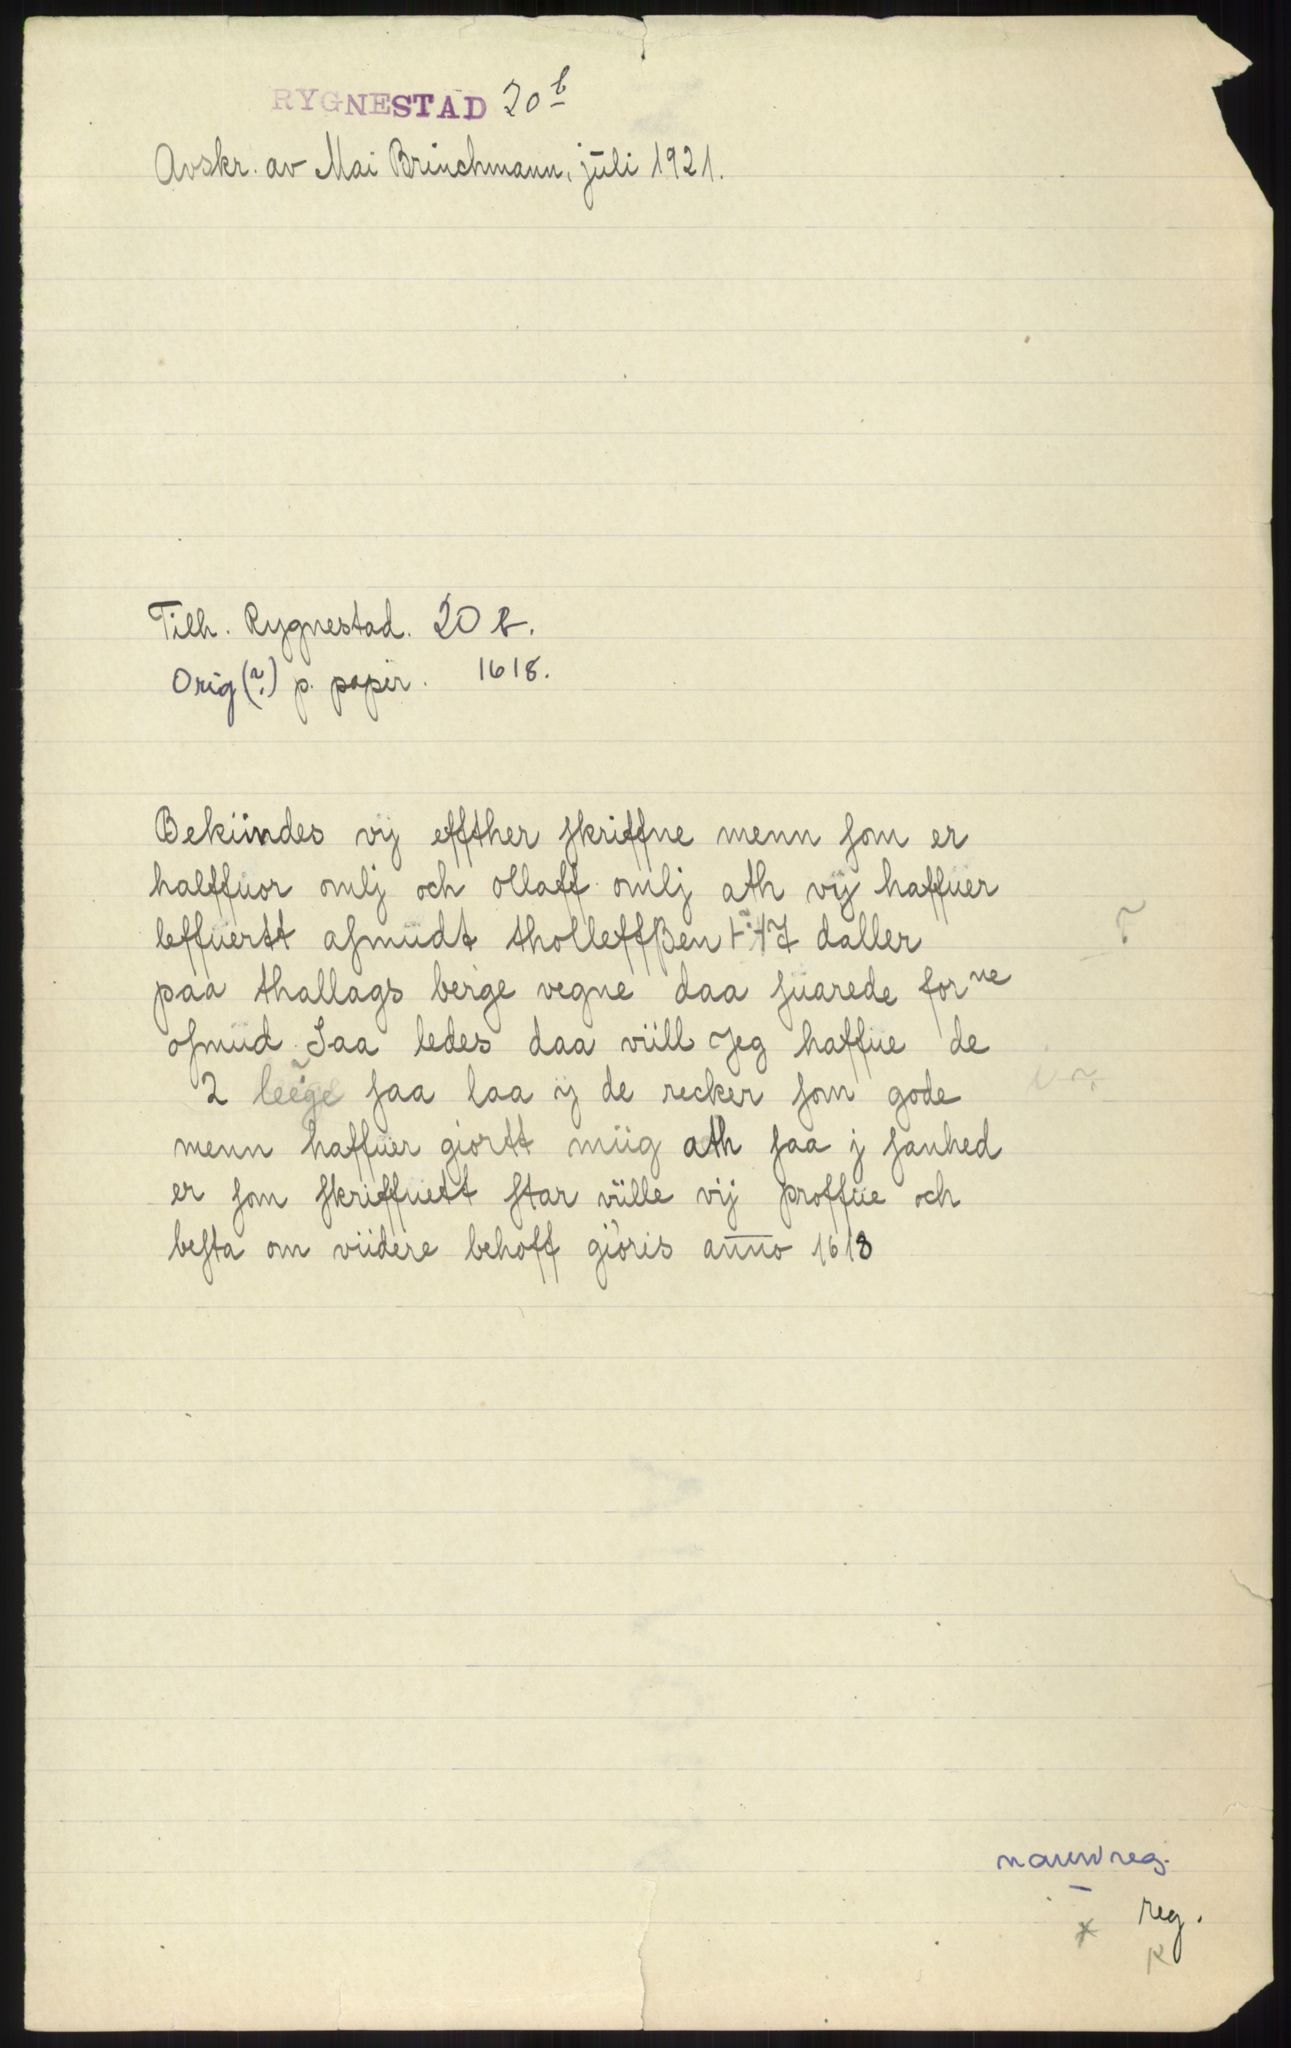 RYGNESTAD 20 b
Avskr. av Mai Brinchmann, juli 1921.
Tilh. Rygnestad. 20 b.
Orig (?) p. papir. 1618.
Bekündes vÿ effther skriffne menn som er
halffuor omlj och ollaff omlj ath vÿ haffuer
leffuertt asmudt tholleffßen daller
paa thallags berge vegne daa suarede for ne
osmud Saa ledes daa vüll Jeg haffue de
2 saa laa ÿ de recker som gode
menn haffuer giortt müg ath saa j sanhed
er som skriffuett star vülle vij proffue och
besta om vüdere behoff giöris anno 1618
navnreg.
reg.